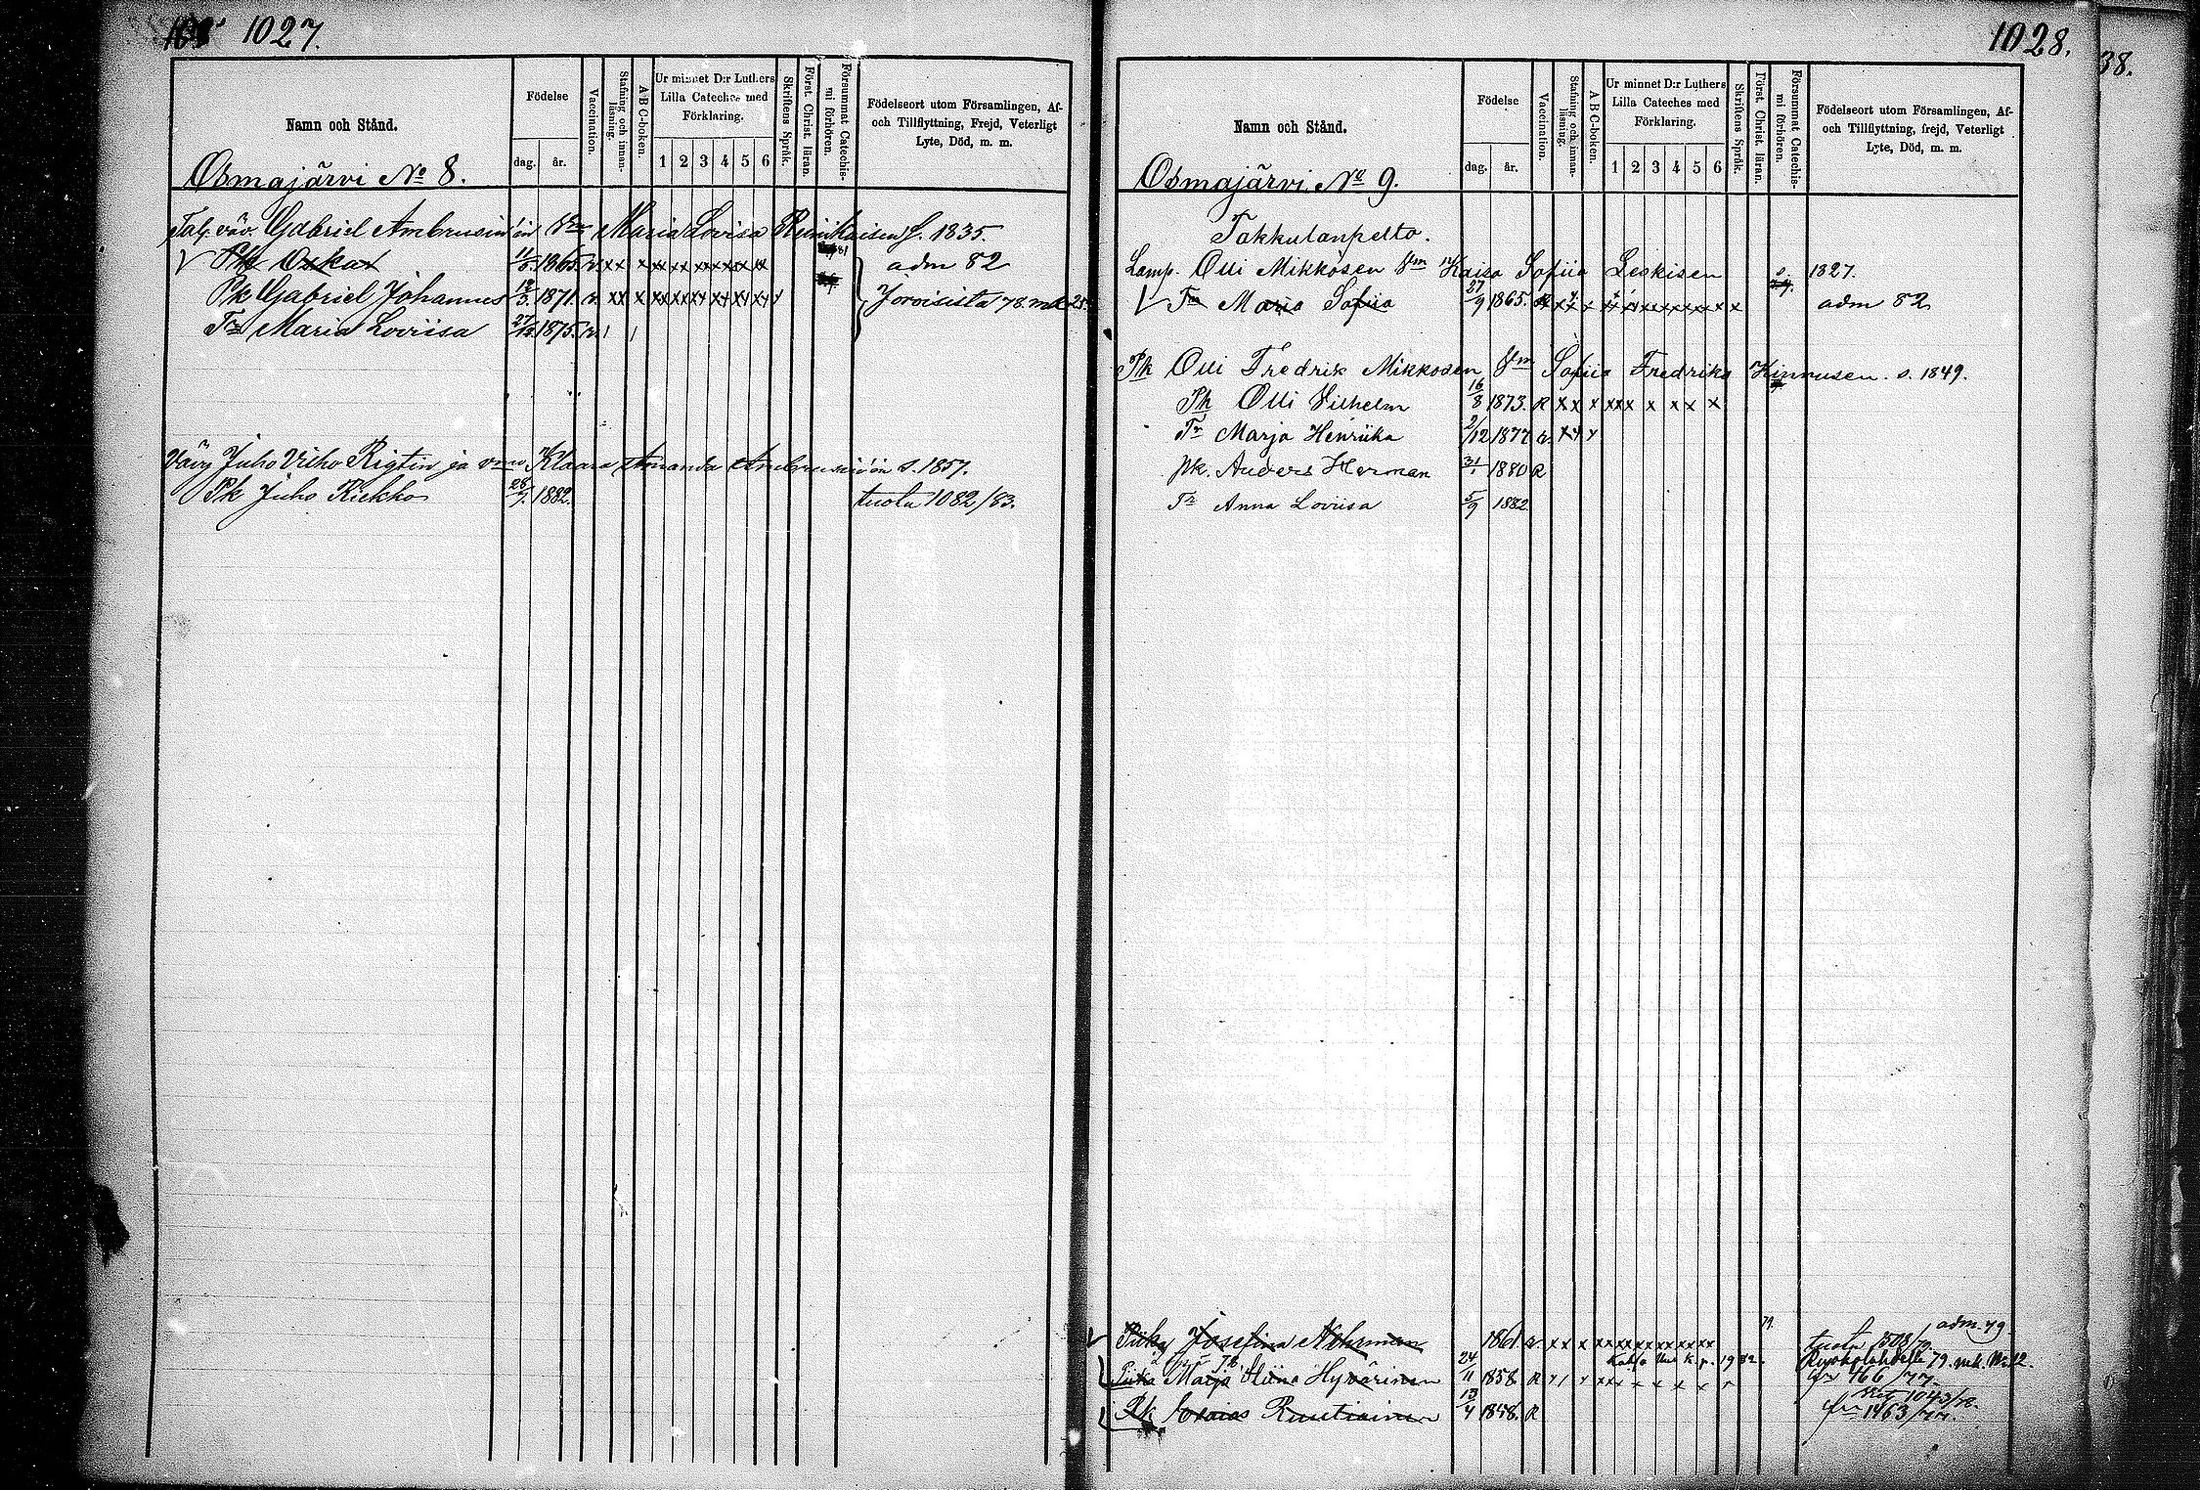 1027.
Namn och Stånd.
Födelse
dag. år.
Vaccination.
Stafning och innan-läsning.
A B C-boken.
Ur minnet D:r Luthers Lilla Cateches med Förklaring.
1 2 3 4 5 6
Skriftens Språk.
Först. Christ. läran.
Försummat Catechis-mi förhören.
Födelseort utom Församlingen, Af- och Tillflyttning, Frejd, Veterligt Lyte, Död, m. m.
Osmajärvi No 8.
Gabriel Ambrusin'in Vmo Maria Lovisa s. 1835.
Pk Oskar 1865. adm 82
Pk Gabriel Johannes 12/3 1871. Joroisista 78. mk 25.
Tr Maria Loviisa 1875.
Vävy Juho Vilho Rigtin ja vmo Klaara Amanda Ambrusin'in s. 1857.
Pk Juho Kiekko 28/7. 1882. tuotu 1082/83.
1028.
38.
Namn och Stånd.
Födelse
dag. år.
Vaccination.
Stafning och innan-läsning.
A B C-boken.
Ur minnet D:r Luthers Lilla Cateches med Förklaring.
1 2 3 4 5 6
Skriftens Språk.
Först. Christ. läran.
Försummat Catechis-mi förhören.
Födelseort utom Församlingen, Af- och Tillflyttning, frejd, Veterligt Lyte, Död, m. m.
Osmajärvi No 9.
Takkulanpelto.
Lamp. Olli Mikkosen Vm Kaisa Sofiia Leskisen s. 1827.
Tr Maria Sofiia 27/9 1865. adm 82
Pk Olli Fredrik Mikkosen Vm Sofiia Fredrika Kinnusen. s. 1849.
Pk Olli Vilhelm 16/8 1873. R
Tr Marja Henriika 2/12 1877
pk. Anders Herman 31/1 1880 R
Tr Anna Loviisa 5/9 1882
adm. 79.
Piika Josefina Nehrman 1861 tuotu
79. mk. No 12.
Piika Marja Hyvärinen 24/11 1858 R 466/77.
1043/78.
Pk Esaias Ruutiainen 13/4 1858. R 1463/77.